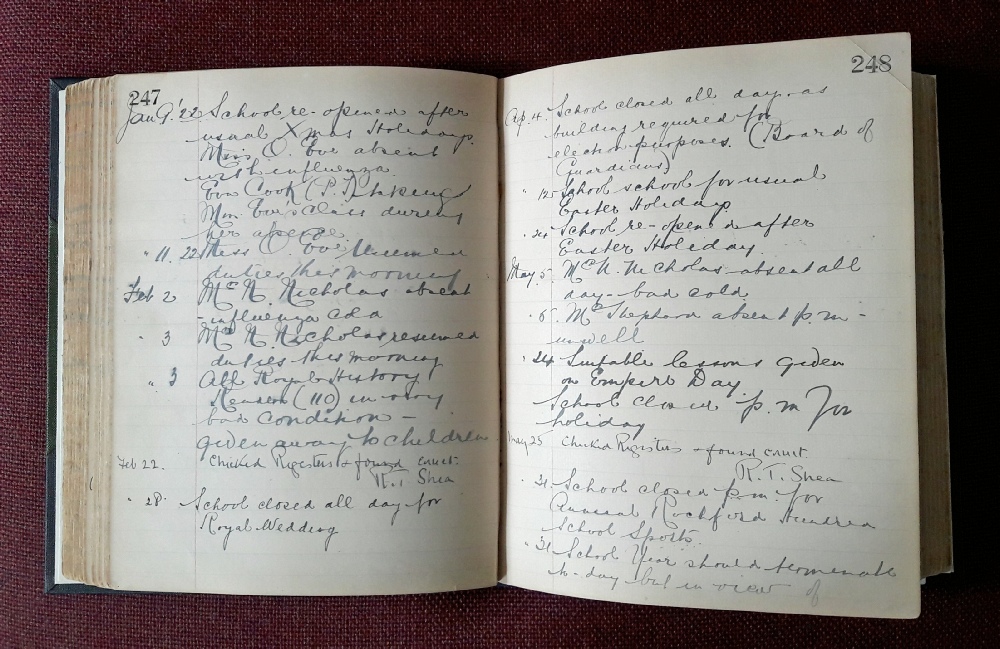 247
Jan 9. '22 School re-opened after
usual Xmas Holidays.
Miss O. Eve absent
with influenza.
Eva Cook (P.T.) taking
Miss Eve's class during
her absence.
" 11. 22 Miss O. Eve resumed
duties this morning
Feb 2 Mr N. Nicholas absent
- influenza cold
" 3 Mr N. Nicholas resumed
duties this morning
" 3 All Royal History
Readers (110) in very
bad condition -
given away to children
Feb 22. Checked Registers & found correct.
R. T. Shea
" 28. School closed all day for
Royal Wedding
248
Ap. 4. School closed all day as
building required for
election purposes. (Board of
Guardians)
" 12 School school for usual
Easter Holiday
" 24 School re-opened after
Easter Holiday
May 5. Mr N. Nicholas absent all
day - bad cold.
" 6. Mr Shepherd absent p.m -
unwell
" 24 Suitable lessons given
on Empire Day
School closed p.m for
holiday
May 25 Checked Registers & found correct.
R. T. Shea
" 31 School closed p.m for
Annual Rochford Hundred
School Sports.
" 31 School Year should terminate
to-day but in view of